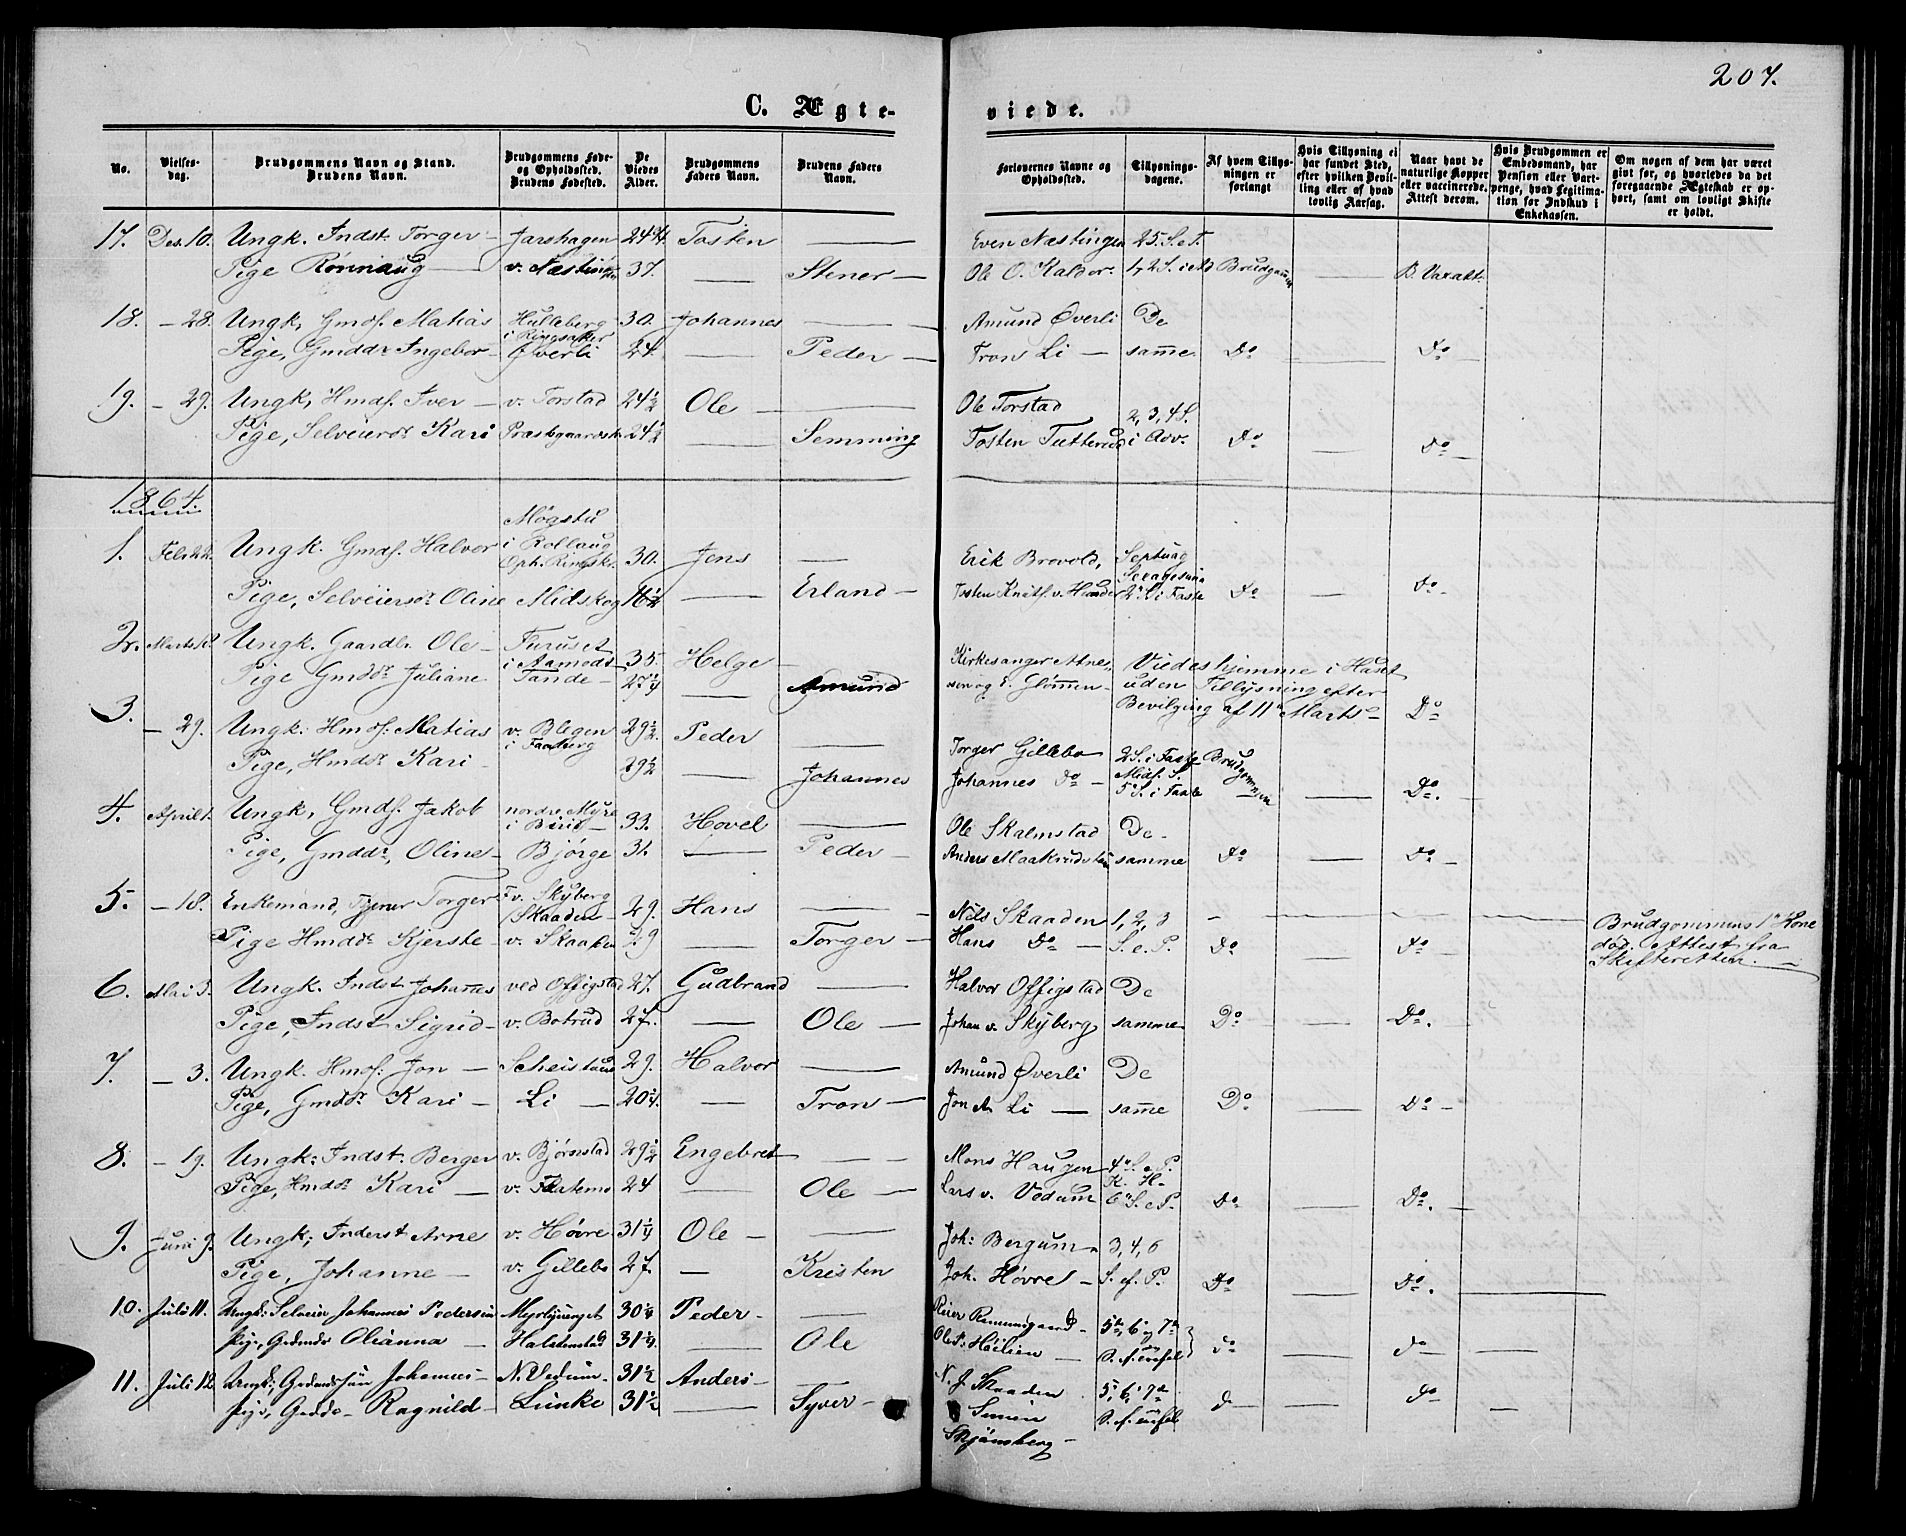 207.
C. Ægte-
viede.
No.
Vielses-
dag.
Brudgommens Navn og Stand.
Brudens Navn.
Brudgommens Føde-
og Opholdssted.
Brudens Fødested.
De
Viedes
Alder.
Brudgommens
Faders Navn.
Brudens Faders
Navn.
Forlovernes Navne og
Opholdssted.
Tillysnings-
dagene.
Af hvem Tillys-
ningen er
forlangt
Hvis Tillysning ei
har fundet Sted,
efter hvilken Bevil-
ling eller af hvad
lovlig Aarsag.
Naar havt de
naturlige Kopper
eller vaccinerede.
Attest derom.
Hvis Brudgommen er
Embedsmand, har
Pension eller Vart-
penge, hvad Legitima-
tion for Indskud i
Enkekassen.
Om nogen af dem har været
givt før, og hvorledes da det
foregaaende Ægteskab er op-
hørt, samt om lovligt Skifte
er holdt.
17. Des. 10. Ungk. Indst. Torger – Jarshagen 24 Tosten — Even Næstingen 25. S. e. T.
Pige Rønnaug — v. Næstingen 37. — Stener — Ole O. Kalder 1, 2 S. i Ad Brudgommen — B. Vaxatt.
18. – 28. Ungk, Gmds. Matias Hulleberg 30. Johannes — Amund Øverli De
i Ringsaker
Pige, Gmddr Ingebor – Øverli 24. — Peder — Tron Li — samme Do — Do
19. – 29. Ungk, Hmds. Iver – v. Torstad 24½ Ole — Ole Torstad 2, 3, 4 S.
Pige, Selveierdr Kari Præstgaardsst 24½ — Semming Tosten Tutterud i Adv. Do — Do
1864.
Møgstu
1. Feb. 22. Ungk. Gmds. Halvor i Rollaug 30. Jens — Erik Brovold, Septuag
Oph. Ringskr. Sexagesima
Pige, Selveiersdr Oline Midskog 16½ — Erland — Tosten v. Hunder 2 S. i Faste Do — Do
2. Marts Ungk. Gaardbr. Ole – Furuset 35. Helge — Kirkesanger Atnes- Viedes hjemme i Huset
i Aamodt
Pige Gmddr Juliane Sande – 27¼ — Amund sen og E. Glömmen – uden Tillysning efter
Bevilging af 11te Marts – Do
3. – 29. Ungk. Hmds. Matias v. Blegen 29½ Peder — Torger Gillebo 2 S. i Faste Brudgommen
i Faaberg
Pige, Hmddr Kari – 29½ — Johannes Johannes Do – Midf. S. — Do.
5 S. i Faste
4. April 1. Ungk, Gmds. Jakob nordre Myre 33. Hovel — Ole Skalmstad De
i Birid
Pige, Gmddr, Oline – Bjørge 31. — Peder — Anders samme Do — Do
5. – 18. Enkemand, Torger Fv. Skyberg 29. Hans — Nils Skaaden 1, 2, 3 – Brudgommens 1te Kone
/Skaaden
Pige Hmddr Kjerste – v. Skaaden 29 — Torger — Hans Do — S. e. P. Do — Do død. Attest fra
Skifteretten.
6. Mai 3. Ungk. Indst Johannes ved Offigstad 27. Gudbrand — Halvor Offigstad De
Pige, Indst Sigrid – v. Botrud 27. — Ole — Johan v. Skyberg samme Do — Do.
7. – 3. Ungk. Hmds. Jon — Scheistuen 29. Halvor — Amund Øverli De
Pige, Gmddr Kari – Li — 20¼. — Tron — Jon Li — samme Do — Do –
8. – 19. Ungk: Indst. Berger v. Bjørnstad 29½ Engebret — Mons Haugen 4 S. e. P.
K. H.
Pige, Hmddr Kari — v. Flatemo 24 — Ole — Lars v. Vedum 6 S. e P. Do — Do.
9. Juni 9. Ungk; Inderst Arne v. Høvre 31¼ Ole – — Joh: Bergum 3, 4, 6
Pige, Johanne — v. Gillebo 27. — Kristen Joh. Høvre – S. ef. P. Do — Do. —
10. Juli 11. Ungk: Selveier Johannes Pedersen Myrljunget 30¼ Peder – — Reier 5te, 6 og 7de
Pige, Gmddr Olianna — Halstenstad 31¼ — Ole Ole P. Heilien — do — do
11. Juli 12. Ungk: Johannes – N. Vedum – 31½ Anders – — N. J. Skaaden 5, 6, 7de
Pige, Ragnild – Linke 31½ — Syver — Simen do — do —
Skjønsberg –